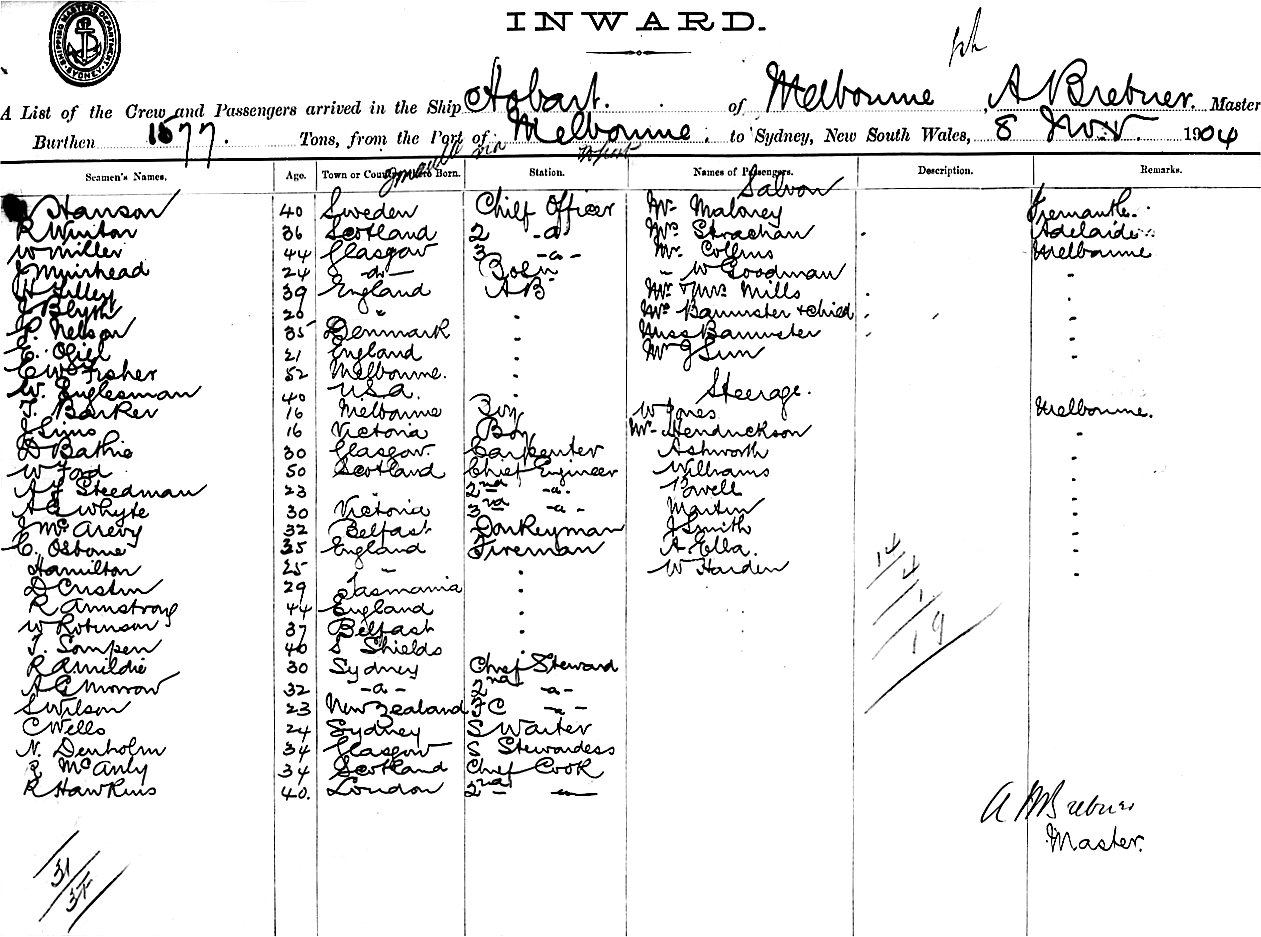 SHIPPING MASTERS DEPARTMENT. SYDNEY.
INWARD.
A List of the Crew and Passengers arrived in the Ship Hobart. of Melbourne, A Brebner. Master
Burthen 1577. Tons, from the Port of Melbourne. to Sydney, New South Wales, 8 Nov 1904
via
Seamen's Names. Age. Town or Country where Born. Station. Names of Passengers. Description. Remarks.
Salvon
Hanson 40 Sweden Chief Officer Mr Maloney Fremantle.
R Winton 36 Scotland 2 -a- Mrs Strachan Adelaide
W Miller 44 Glasgow 3 -a- Mr. Collins Melbourne
J Muirhead 24 -do- Bosn - W Goodman "
H Tilley 39 England AB Mr & Mrs Mills "
J Blyth 20 " " Mrs Bannister & Child "
P. Nelson 35 Denmark " Miss Bannister "
E. Ogiel 21 England " Mr J Sim "
C W Fisher 52 Melbourne. "
W. Englesman 40 U.S.A. " Steerage.
T. Barker 16 Melbourne Boy W Jones Melbourne.
J Sims 16 Victoria Boy Mr Hendrickson "
D Bathie 30 Glasgow. Carpenter Ashworth "
W Ford 50 Scotland Chief Engineer Williams "
A F Steedman 23 2nd -a- Powell "
A E Whyte 30 Victoria 3rd -a- Martin "
J McArevy 32 Belfast Donkeyman J Smith "
C. Osborne 35 England Fireman A Ella. "
Hamilton 25 " " W Harden "
D Custin 29 Tasmania "
R Armstrong 44 England "
W Robinson 37 Belfast "
T. Sompen 40 S Shields "
R A Mildie 30 Sydney Chief Steward
A E Morrow 32 -a- 2nd -a-
S Wilson 23 New Zealand FC -"-
C Wells 24 Sydney S Waiter
N. Denholm 34 Glasgow S Stewardess
R McAnly 34 Scotland Chief Cook
R Hawkins 40. London 2nd "
14
4
1
19
A Brebner
Master.
31